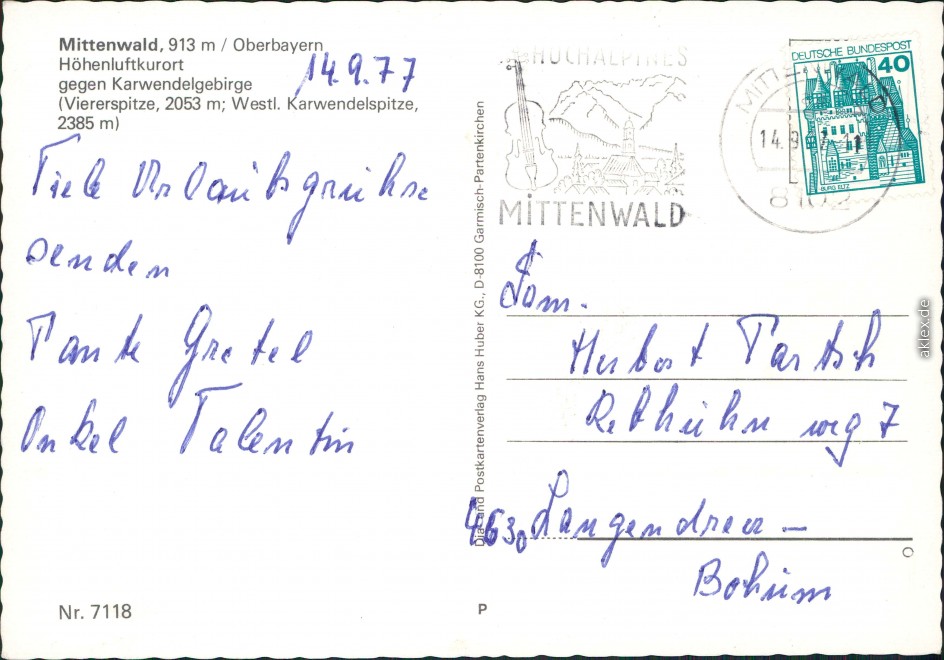 Mittenwald, 913 m / Oberbayern
Höhenluftkurort
gegen Karwendelgebirge
(Viererspitze, 2053 m; Westl. Karwendelspitze,
2385 m)
14.9.77
Viele Urlaubsgrühse
senden
Tante Gretel
Onkel Valentin
Nr. 7118
Dia- und Postkartenverlag Hans Huber KG., D-8100 Garmisch-Partenkirchen
P
HOCHALPINES
MITTENWALD
MITTENWALD
14.9.77
8102
DEUTSCHE BUNDESPOST
40
BURG ELTZ
Fam.
Herbert Tartsch
Rebhuhnweg 7
4630 Langendreer –
Bochum
aklex.de